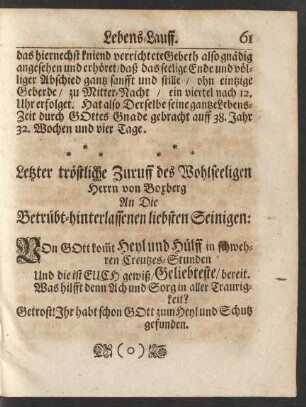 Lebens-Lauff. 61
das hiernechst kniend verrichtete Gebeth also gnädig
angesehen und erhöret/ daß das seelige Ende und völ-
liger Abschied gantz sanfft und stille/ ohn eintzige
Geberde/ zu Mitter-Nacht/ ein viertel nach 12.
Uhr erfolget. Hat also Derselbe seine gantze Lebens-
Zeit durch GOttes Gnade gebracht auff 38. Jahr
32. Wochen und vier Tage.
* * * * *
Letzter tröstliche Zuruff des Wohlseeligen
Herrn von Boxberg
An Die
Betrübt-hinterlassenen liebsten Seinigen:
VOn GOtt kom̃t Heyl und Hülff in schweh-
ren Creutzes-Stunden
Und die ist EUCH gewiß/ Geliebteste/ bereit.
Was hilfft denn Ach und Sorg in aller Traurig-
keit?
Getrost! Ihr habt schon GOtt zum Heyl und Schutz
gefunden.
(o)